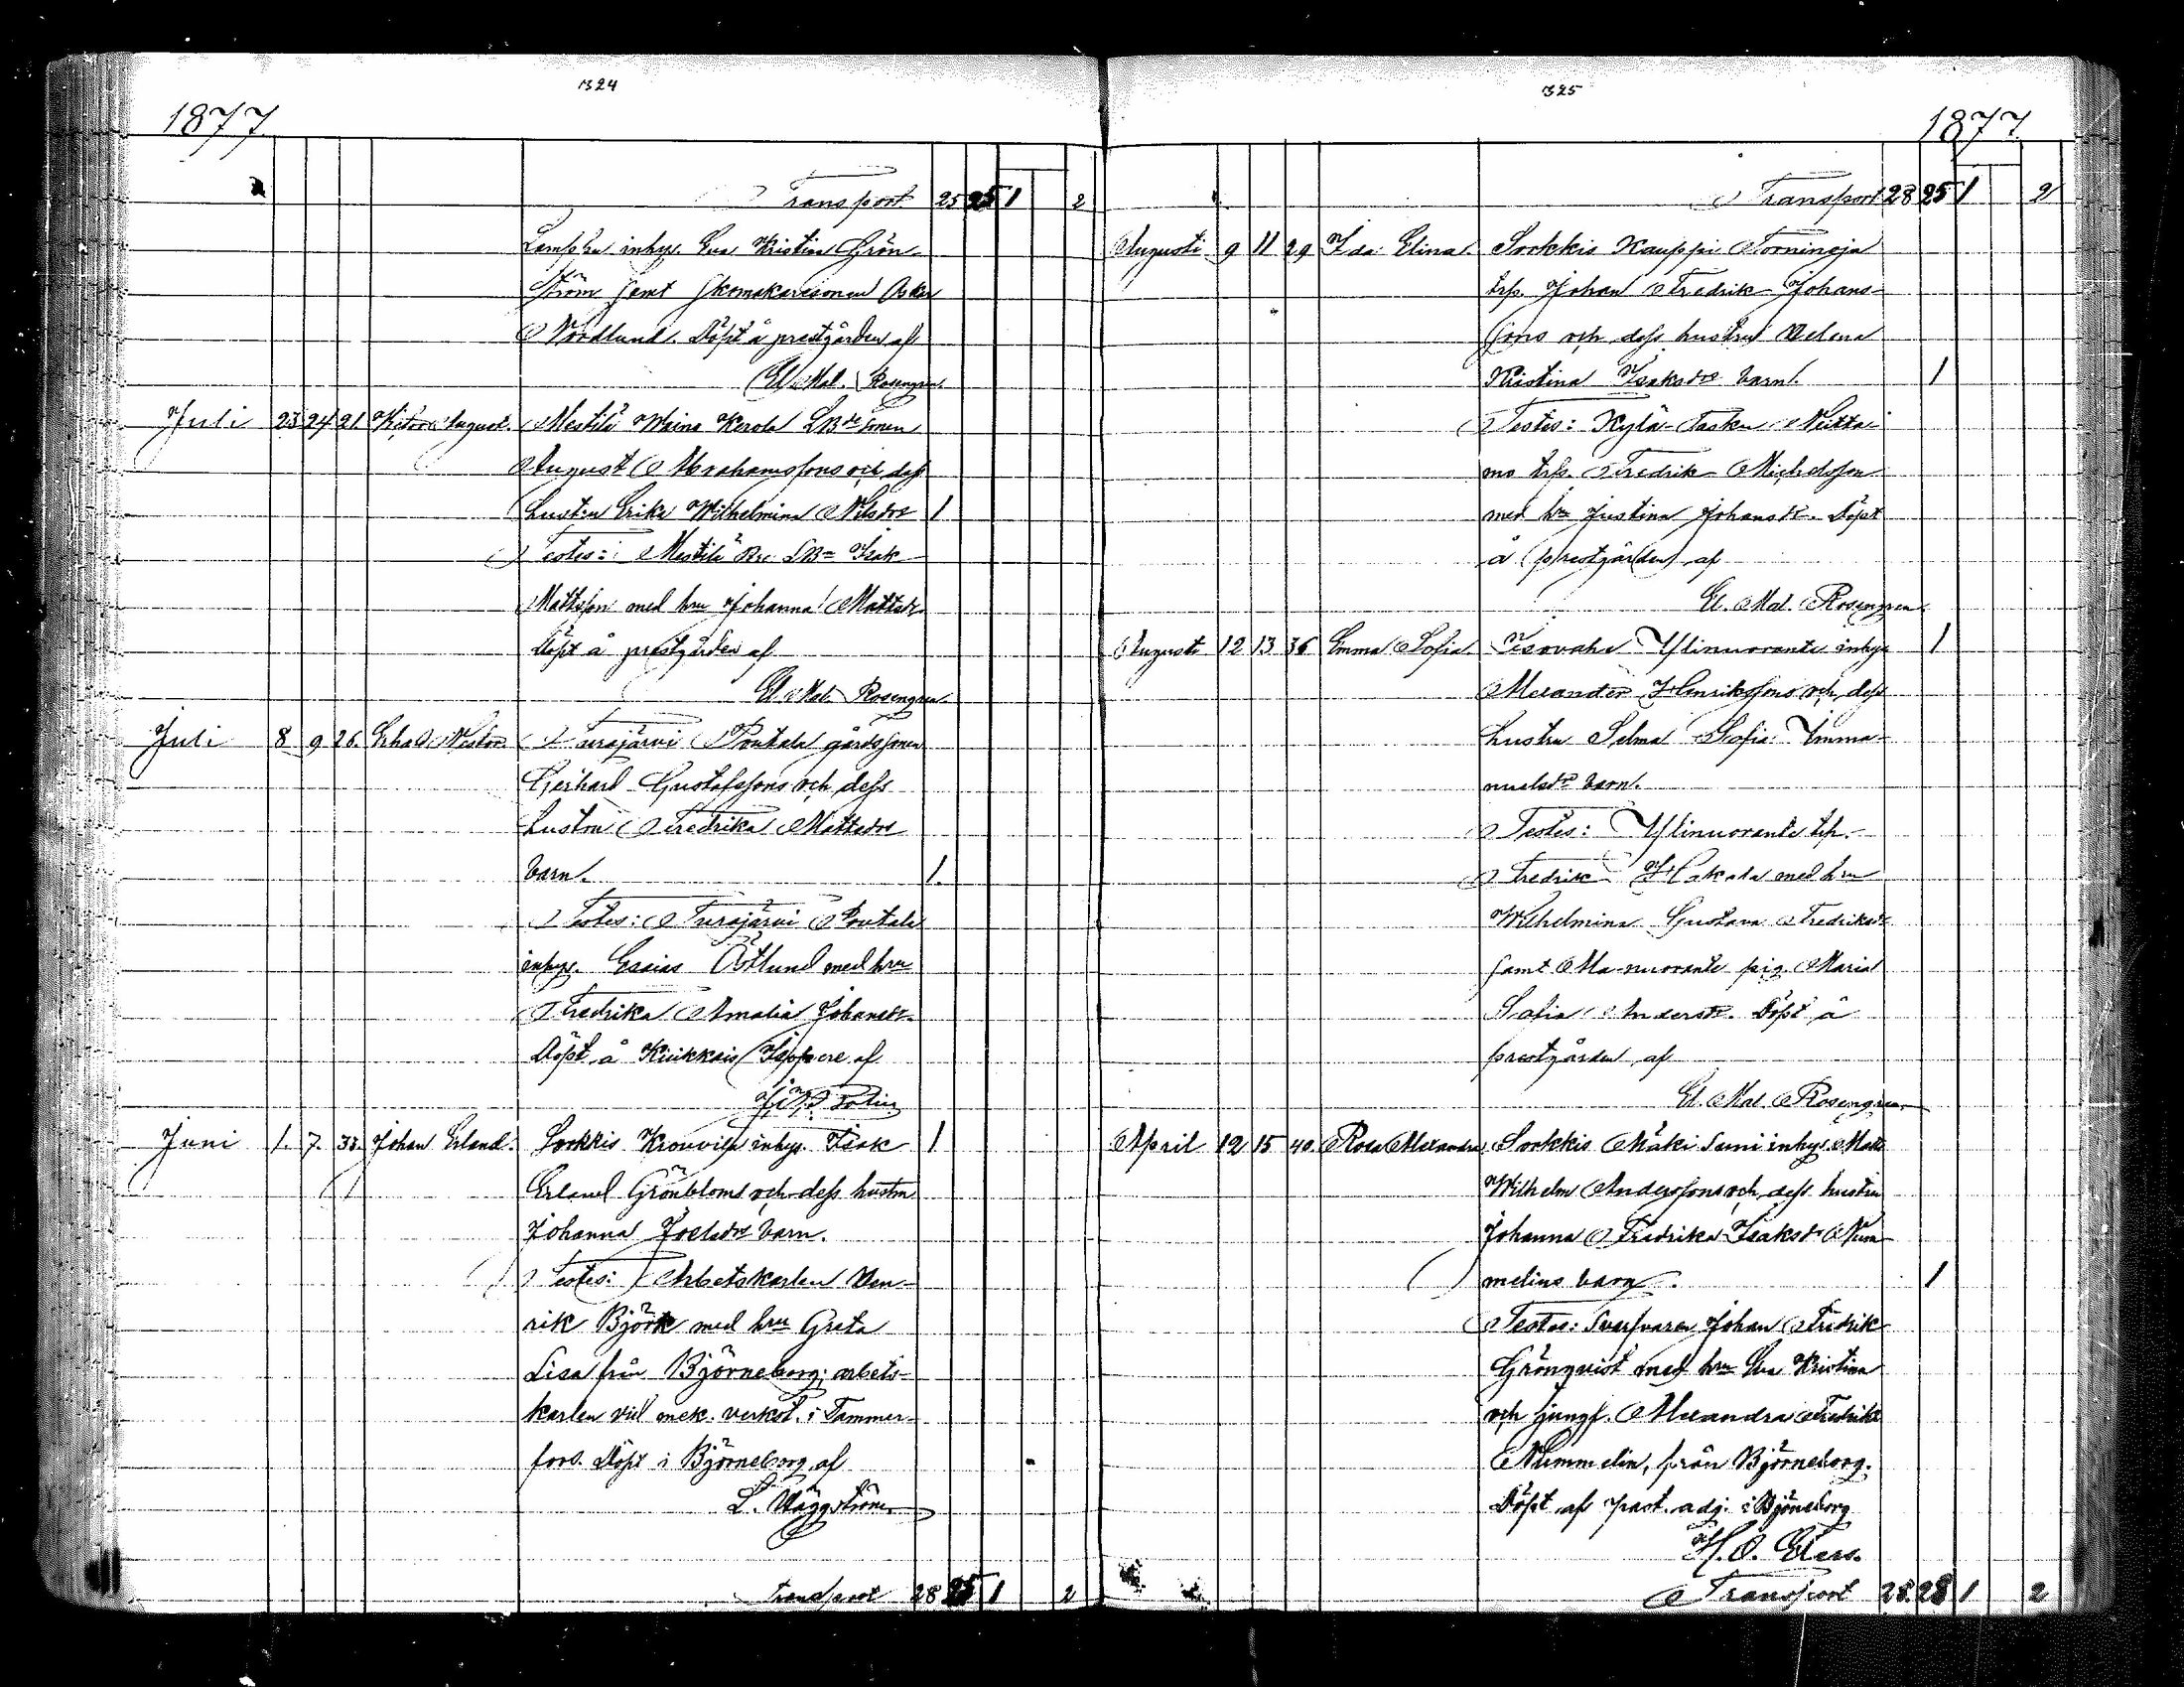 1324
1877
Transport 25 25 1 2
inhys. Eva Kristina Grön-
ström jemt skomakaresonen Oskar
Nordlund. Döpt å prestgården af
El. Mal. Rosengren.
Juli 23 24 21 Viktor August. Mestilä Waina Kerola LBdesonen
August Abrahamssons och dess
hustru Erika Wilhelmina Nilsdr 1
Testes: Mestilä LB= Isak
Mattsson med hru Johanna Mattsdr
Döpt å prestgården af
El. Mal. Rosengren.
Juli 8 9 26. Nestor Turajärvi Pontala gårdssonen
Gerhard Gustafssons och dess
hustru Fredrika Mattsdr
barn. 1.
Testes: Turajärvi Pontala
inhys. Esaias Östlund med hru
Fredrika Amalia Johansdr.
Döpt å Kiukkais Isppere af
Juni 1. 7. 33. Johan Erland. Sorkkis inhys. Isak 1
Erland Grönbloms och dess hustru
Johanna Joelsdr barn.
Testes: Arbetskarlen Hen-
rik Björk med hru Greta
Lisa från Björneborg; arbets-
karlen vid mek. verkst. i Tammer-
fors. Döpt i Björneborg af
L. Häggström
Transport 28 25 1 2
1325
1877
Transport 28 25 1 2
Augusti 9 11 29 Ida Elina. Sorkkis Kauppi Torninoja
trp. Johan Fredrik Johans-
sons och dess hustru Helena
Kristina Isaksdr barn. 1
Testes: Kylä-Tasku Niitta-
mo trp. Fredrik Michelsson
med hru Justina Johansdr. Döpt
å prestgården af
El. Mal. Rosengren
Augusti 12 13 36 Emma Sofia Ylinuorante inhys 1
Alexander Henrikssons och dess
hustru Selma Sofia Imma-
nuelsdr barn.
Testes: Ylinuorante trp.
Fredrik Hakala med hru
Wilhelmina Gustava Fredriksdr
samt Ala-nuorante pig. Maria
Sofia Andersdr. Döpt å
prestgården af
El. Mal. Rosengren.
April 12 15 40. Rosa Alexandra. Sorkkis Mäki Suni inhys. Matts
Wilhelm Anderssons och dess hustru
Johanna Fredrika Isaksdr Num-
melins barn. 1
Testes: Svarfvaren Johan Fredrik
Grönqvist med hru Eva Kristina
och jungf. Alexandra Fredrika
Nummelin, från Björneborg.
Döpt af past. adj. i Björneborg
Transport 28. 28 1 2